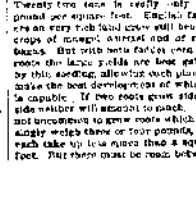 Twenty two tons is really only
pound per square foot. English fa
ers on very rich land grow still hea
crops of mangel wurzel and of r
bagas. But with both fodder corn
roots the large yields are best ga
by thin seeding, allowing each plan
make the best development of which
is capable. If two roots grow side
side neither will amount to much.
not uncommon to grow roots which
singly weigh three or four pounds,
each take up less more than a squ
foot. But there must be room betw